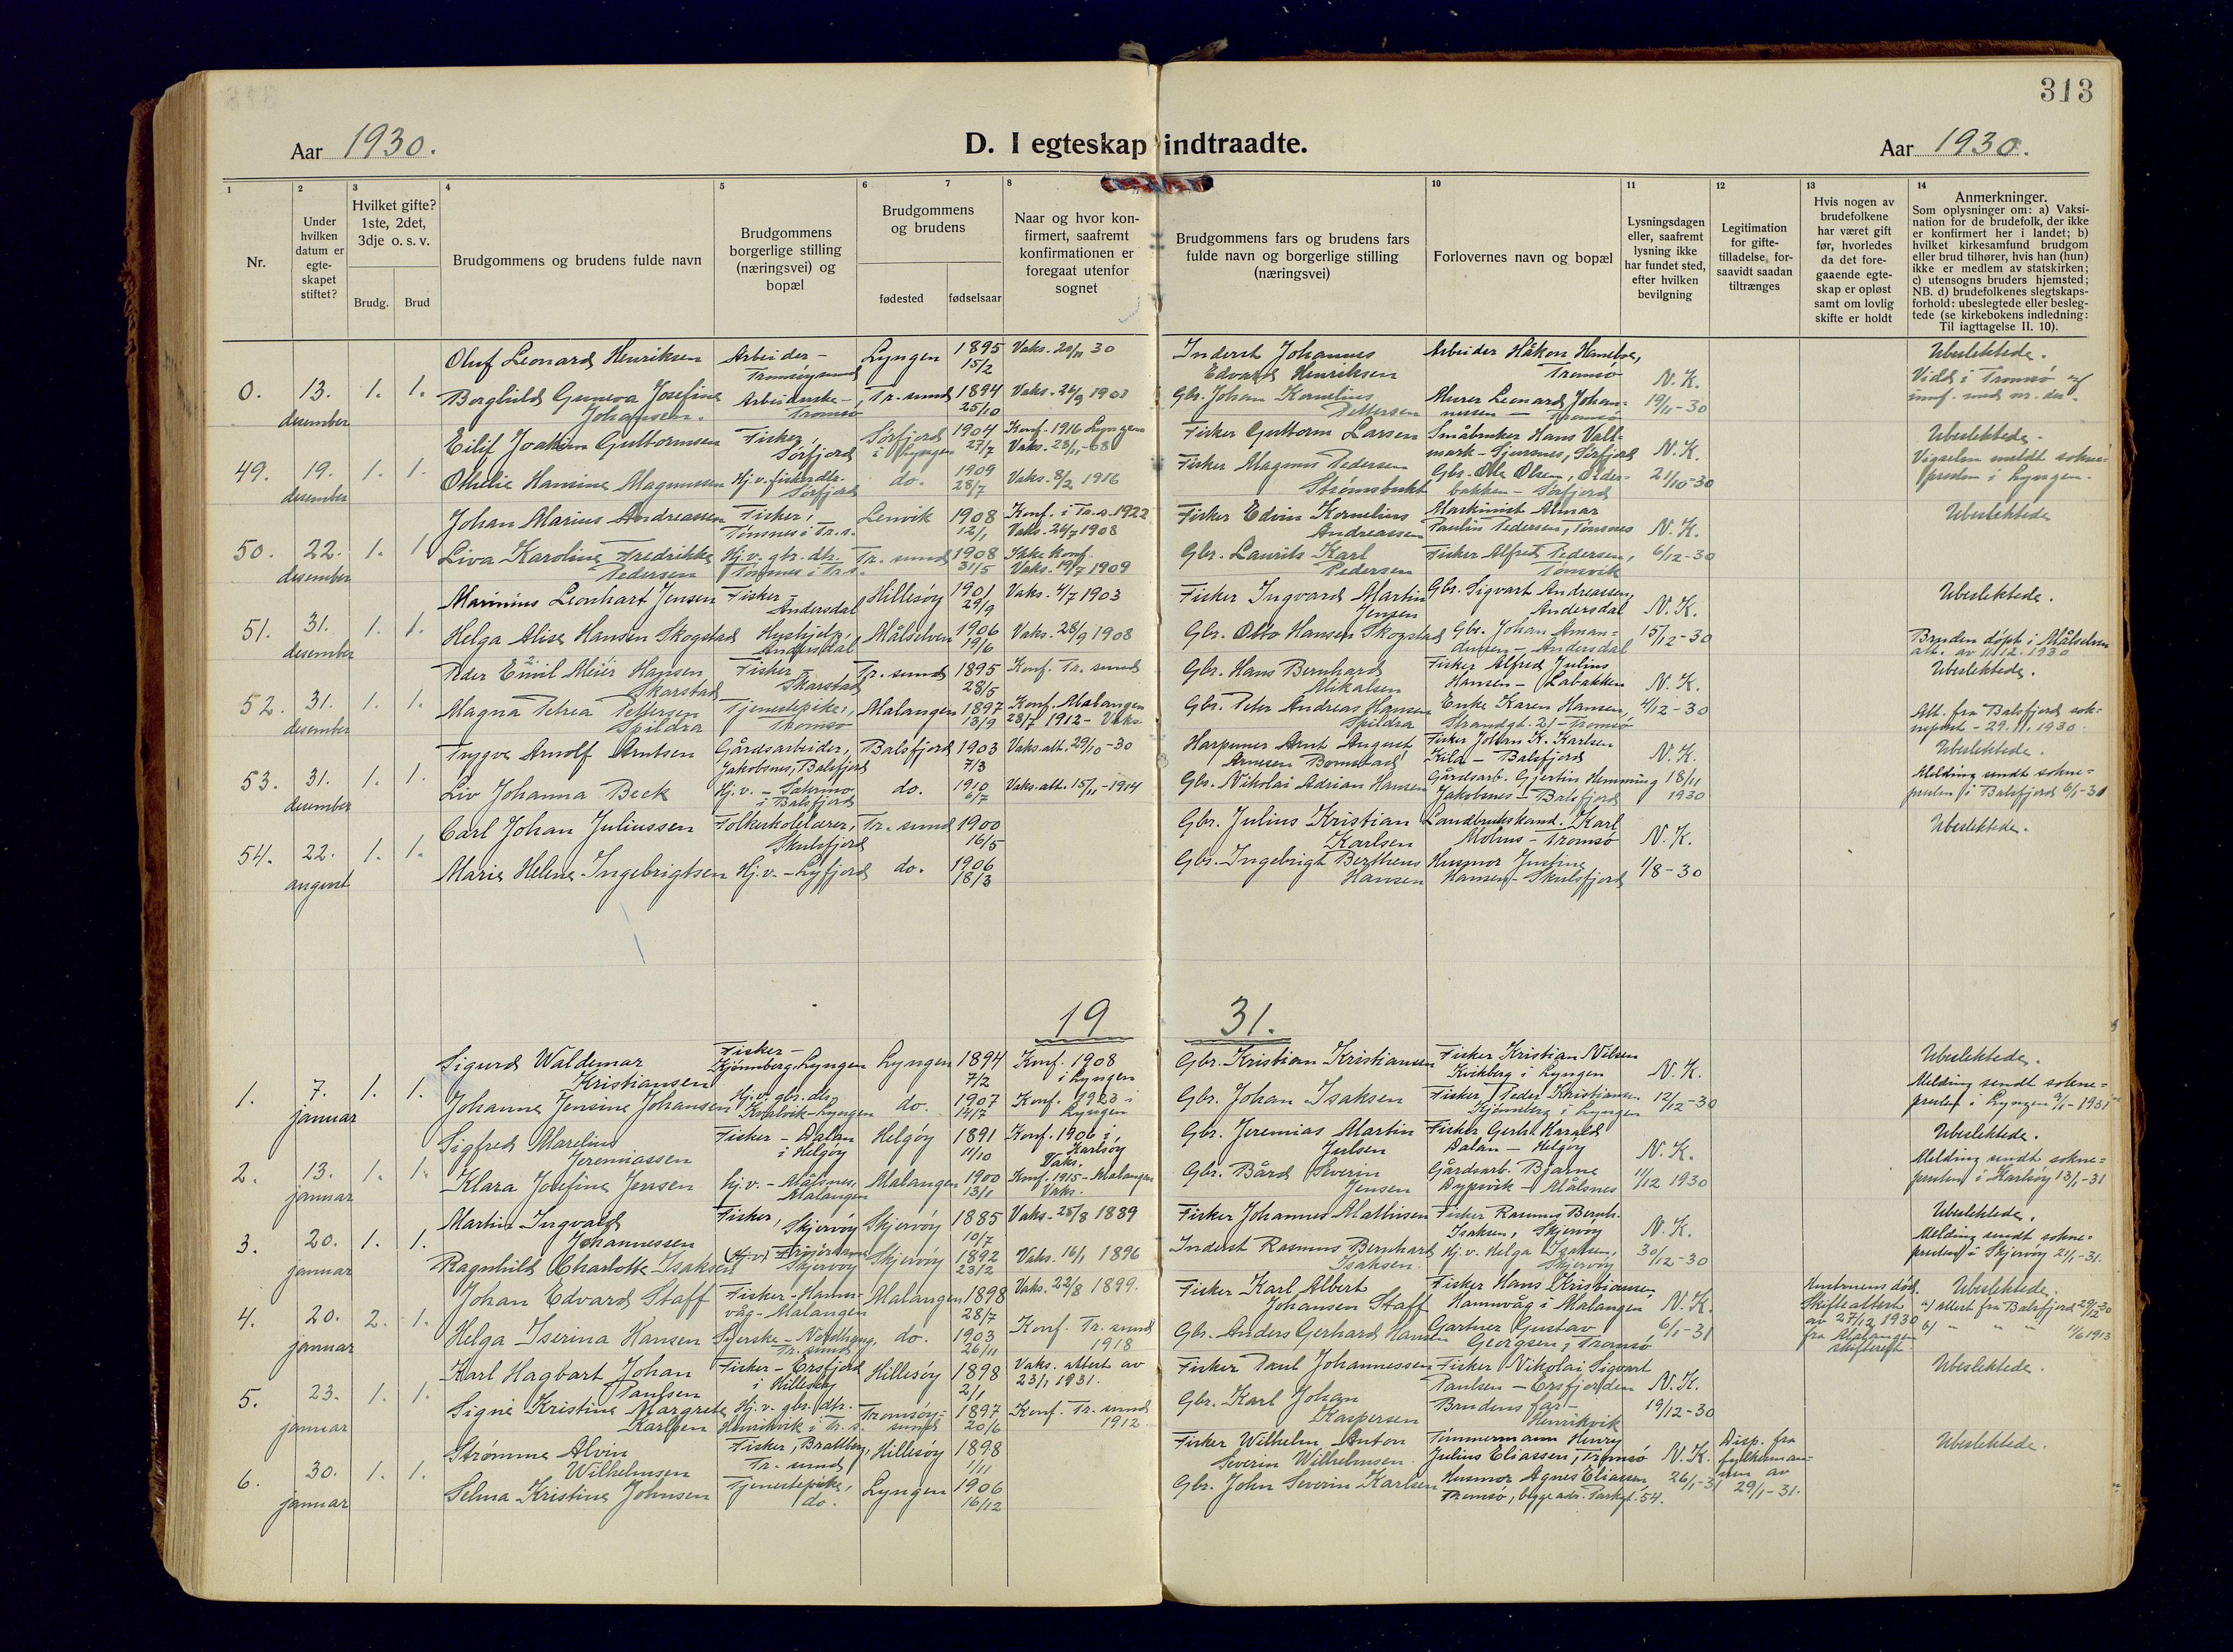 313
Aar 1930.
D. I egteskap indtraadte.
Aar 1930.
1
2
3
4
5
6
7
8
10
11
12
13
14
Nr.
Under hvilken datum er egte-skapet stiftet?
Hvilket gifte? 1ste, 2det, 3dje o. s. v.
Brudg.
Brud
Brudgommens og brudens fulde navn
Brudgommens borgerlige stilling (næringsvei) og bopæl
Brudgommens og brudens
fødested
fødselsaar
Naar og hvor kon-firmert, saafremt konfirmationen er foregaat utenfor sognet
Brudgommens fars og brudens fars fulde navn og borgerlige stilling (næringsvei)
Forlovernes navn og bopæl
Lysningsdagen eller, saafremt lysning ikke har fundet sted, efter hvilken bevilgning
Legitimation for gifte-tilladelse, for-saavidt saadan tiltrænges
Hvis nogen av brudefolkene har været gift før, hvorledes da det fore-gaaende egte-skap er opløst samt om lovlig skifte er holdt
Anmerkninger.
Som oplysninger om: a) Vaksi-nation for de brudefolk, der ikke er konfirmert her i landet; b) hvilket kirkesamfund brudgom eller brud tilhører, hvis han (hun) ikke er medlem av statskirken; c) utensogns bruders hjemsted; NB. d) brudefolkenes slegtskaps-forhold: ubeslegtede eller besleg-tede (se kirkebokens indledning: Til iagttagelse II. 10).
0. 13. desember 1. 1.
Oluf Leonard Henriksen Arbeider - Tromsøysund Lyngen 1895 15/2 Vaks. 20/11 30
Inderst Johannes Edvard Henriksen Arbeider Håkon Haneboe, Tromsø N. K. 19/11-30 Ubeslektede.
Borghild Guneva Josefine Johansen. Arbeiderske - Tromsø Tr. sund 1894 25/10 Vaks. 26/9 1901
Gbr. Johan Kornelius Pettersen Murer Leonard Johannessen - Tromsø Vidd i Tromsø
49. 19. desember 1. 1.
Eilif Joakim Guttormsen Fisker, Sørfjord Sørfjord i Lyngen 1904 27/7 Konf. 1916 Lyngen Vaks. 28/11-08
Fisker Guttorm Larsen Småbruker Hans Vallmark - Gjursnes, Sørfjord N. K. 21/10-30 Ubeslektede.
Othelie Hansine Magnussen Hj. v. fisker dtr. Sørfjord do. 1909 28/7 Vaks. 8/2 1916
Fisker Magnus Pedersen Strømsbukt Gbr. Ole Olsen, Olderbakken - Sørfjord Vigselen meldt sokne-presten i Lyngen.
50. 22. desember 1. 1.
Johan Marius Andreassen Fisker, Tønsnes i Tr. s. Lenvik 1908 12/1 Konf. i Tr. s. 1922 Vaks. 26/7 1908
Fisker Edvin Kornelius Andreassen Maskinist Almar Paulin Pedersen, Tønsnes N. K. 6/12-30 Ubeslektede
Liva Karoline Fredrikke Pedersen Hj. v. gbr. dtr. Tønsnes i Tr. s. Tr. sund 1908 31/5 Ikke konf. Vaks. 19/7 1909
Gbr. Laurits Karl Pedersen Fisker Alfred Pedersen, Tønsvik
51. 31. desember 1. 1.
Marinius Leonhart Jensen Fisker - Andersdal Hillesøy 1901 29/9 Vaks. 4/7 1903
Fisker Ingvard Martin Jensen Gbr. Sigvart Andreassen, Andersdal N. K. 15/12-30 Ubeslektede.
Helga Alise Hansen Skogstad Hushjelp, Andersdal Målselven 1906 19/6 Vaks. 28/9 1908
Gbr. Otto Hansen Skogstad Gbr. Johan Amandussen - Andersdal Bruden døpt i Målselven att. av 11.12.1930
52. 31. desember 1. 1.
Peder Emil Meier Hansen Skarstad Fisker - Skarstad Tr. sund 1895 28/5 Konf. Tr. sund
Gbr. Hans Bernhard Mikalsen Fisker Alfred Julius Hansen - Labakken N. K. 4/12-30 Ubeslektede.
Magna Petrea Pettersen Spildra Tjenestepike, Tromsø Malangen 1897 13/9 Konf. Malangen 28/7 1912 - Vaks.
Gbr. Peter Andreas Hansen Spildra Enke Karen Hansen, Strandgt. 21 - Tromsø Att. fra Balsfjord sokneprest - 29.11.1930.
53. 31. desember 1. 1.
Trygve Arnolf Arntsen Gårdsarbeider, Jakobsnes, Balsfjord Balsfjord 1903 7/3 Vaks. att. 29/10-30
Harpuner Arnt August Arntsen Fisker Johan K. Karlsen Kila - Balsfjord N. K. 18/11 1930 Ubeslektede.
Liv Johanna Beck Hj. v. - i Balsfjord do. 1910 6/7 Vaks. att. 15/11-1914
Gbr. Nikolai Adrian Hansen Gårdsarb. Gjertin Hemming Jakobsnes - Balsfjord Melding sendt sokne-presten i Balsfjord 6/1-31
54. 22. august 1. 1.
Carl Johan Juliussen Folkeskolelærer, Skulsfjord Tr. sund 1900 16/5
Gbr. Julius Kristian Karlsen Landbrukskand. Karl Mohus - Tromsø N. K. 1/8-30 Ubeslektede.
Marie Helene Ingebrigtsen Hj. v. - Lyfjord do. 1906 18/3
Gbr. Ingebrigt Berthens Hansen Husmor Justine Hansen - Skulsfjord
19 31.
1. 7. januar 1. 1.
Sigurd Waldemar Kristiansen Fisker - Kjønnberg, Lyngen Lyngen 1894 7/2 Konf. 1908 i Lyngen
Gbr. Kristian Kristiansen Fisker Kristian Nilsen Kvikberg i Lyngen N. K. 12/12-30 Ubeslektede.
Johanne Jensine Johansen Hj. v. gbr. dtr. Kvalvik - Lyngen do. 1907 14/7 Konf. 1923 i Lyngen
Gbr. Johan Isaksen Fisker Peder Kristiansen Kjønnberg i Lyngen Melding sendt sokne-presten i Lyngen 9/1-1931
2. 13. januar 1. 1.
Sigfred Marelius Jeremiassen Fisker - Dalan i Helgøy Helgøy 1891 11/10 Konf. 1906 i Karlsøy Vaks.
Gbr. Jeremias Martin Julsen Fisker Gerht Harald Dalan - Helgøy N. K. 11/12 1930 Ubeslektede.
Klara Josefine Jensen Hj. v. - Målsnes, Malangen Malangen 1900 13/1 Konf. 1915 - Malangen Vaks.
Gbr. Bård Severin Jensen Gårdsarb. Bjarne Dypvik - Målsnes Melding sendt sokne-presten i Karlsøy 13/1-31
3. 20. januar 1. 1.
Martin Ingvald Johannessen Fisker, Skjervøy Skjervøy 1885 10/7 Vaks. 25/8 1889
Fisker Johannes Mathisen Fisker Rasmus Bernh. Isaksen, Skjervøy N. K. 30/12-30 Ubeslektede.
Ragnhild Charlotte Isaksen Hj. v. Skjervøy Skjervøy 1892 23/2 Vaks. 16/1 1896
Inderst Rasmus Bernhard Isaksen. Hj. v. Helga Isaksen, Skjervøy Melding sendt sokne-presten i Skjervøy 21/1-31.
4. 20. januar 2. 1.
Johan Edvard Staff Fisker - Hamnvåg - Malangen Malangen 1898 28/7 Vaks. 22/8 1899.
Fisker Karl Albert Johansen Staff Fisker Hans Kristiansen, Hamnvåg i Malangen N. K. 6/1-31 Hustruens død. Skifteattest av 27/12 1930 fra Malangen skifterett. Ubeslektede. a) attest fra Balsfjord 29/12-30
Helga Iserina Hansen Syerske - Nordhaug, Tr. sund do. 1903 26/11 Konf. Tr. sund 1918
Gbr. Anders Gerhard Hansen Gartner Gustav Georgsen, Tromsø b) " " " 11/6 1913
5. 23. januar 1. 1.
Karl Hagbart Johan Paulsen Fisker - Ersfjord i Hillesøy Hillesøy 1898 2/1 Vaks. attest av 23/1 1931.
Fisker Paul Johannessen Fisker Nikolai Sigvart Paulsen - Ersfjorden N. K. 19/12-30 Ubeslektede.
Signe Kristine Margrete Karlsen Hj. v. gbr. dtr. Henrikvik i Tr. s. Tromsøysund 1897 20/6 Konf. Tr. sund 1912.
Gbr. Karl Johan Kaspersen Brudens far - Henrikvik
6. 30. januar 1. 1.
Strømme Alvin Wilhelmsen Fisker, Tr. sund Hillesøy 1898 1/11
Fisker Wilhelm Anton Severin Wilhelmsen Tømmermann Henry Julius Eliassen, Tromsø N. K. 26/1-31 Disp. fra fylkesmannen av 29/1-31. Ubeslektede.
Selma Kristine Johnsen Tjenestepike, do. Lyngen 1906 16/12
Gbr. John Severin Karlsen Husmor Agnes Eliassen, Tromsø, begge adr. Parkgt. 54.